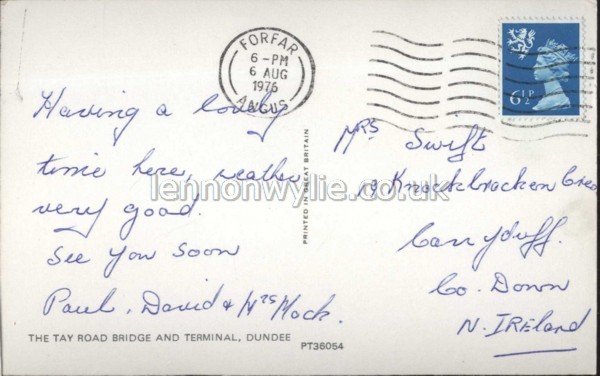 FORFAR
6-PM
6 AUG
1976
ANGUS
6½P
Having a lovely
time here, weather
very good.
See you soon
Paul, David & Mrs Mock.
THE TAY ROAD BRIDGE AND TERMINAL, DUNDEE
PT36054
PRINTED IN GREAT BRITAIN
Mrs Swift
19 Knockbracken Cres
Carryduff.
Co. Down
N. IRELAND
lennonwylie.co.uk